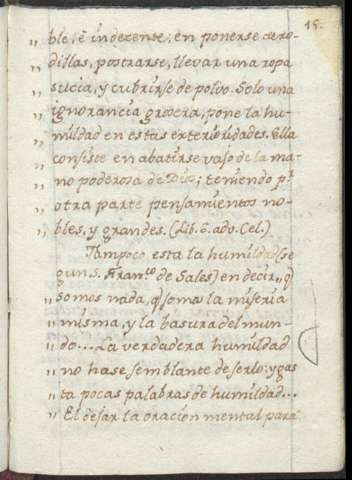 15.
„ ble, è indezente, en ponerse de ro-
„ dillas, postrarse, llevar una ropa
„ sucia, y cubrirse de polvo. Solo una
„ ignorancia grosera, pone la hu-
„ mildad en estas exterioridades. Ella
„ consiste en abatirse vajo de la ma-
„ no poderosa de Dios; teniendo pr.
„ otra parte pensamientos no-
„ bles, y grandes. (Lib. 6. adv. Cel.)
Tampoco esta la humildad (se
gun S. Franco. de Sales) en decir „ q
„ somos nada, q somos la miseria
„ misma, y la basura del mun-
„ do... La verdadera humildad
„ no hase semblante de serlo: y gas
„ ta pocas palabras de humildad...
„ El dejar la oracion mental para